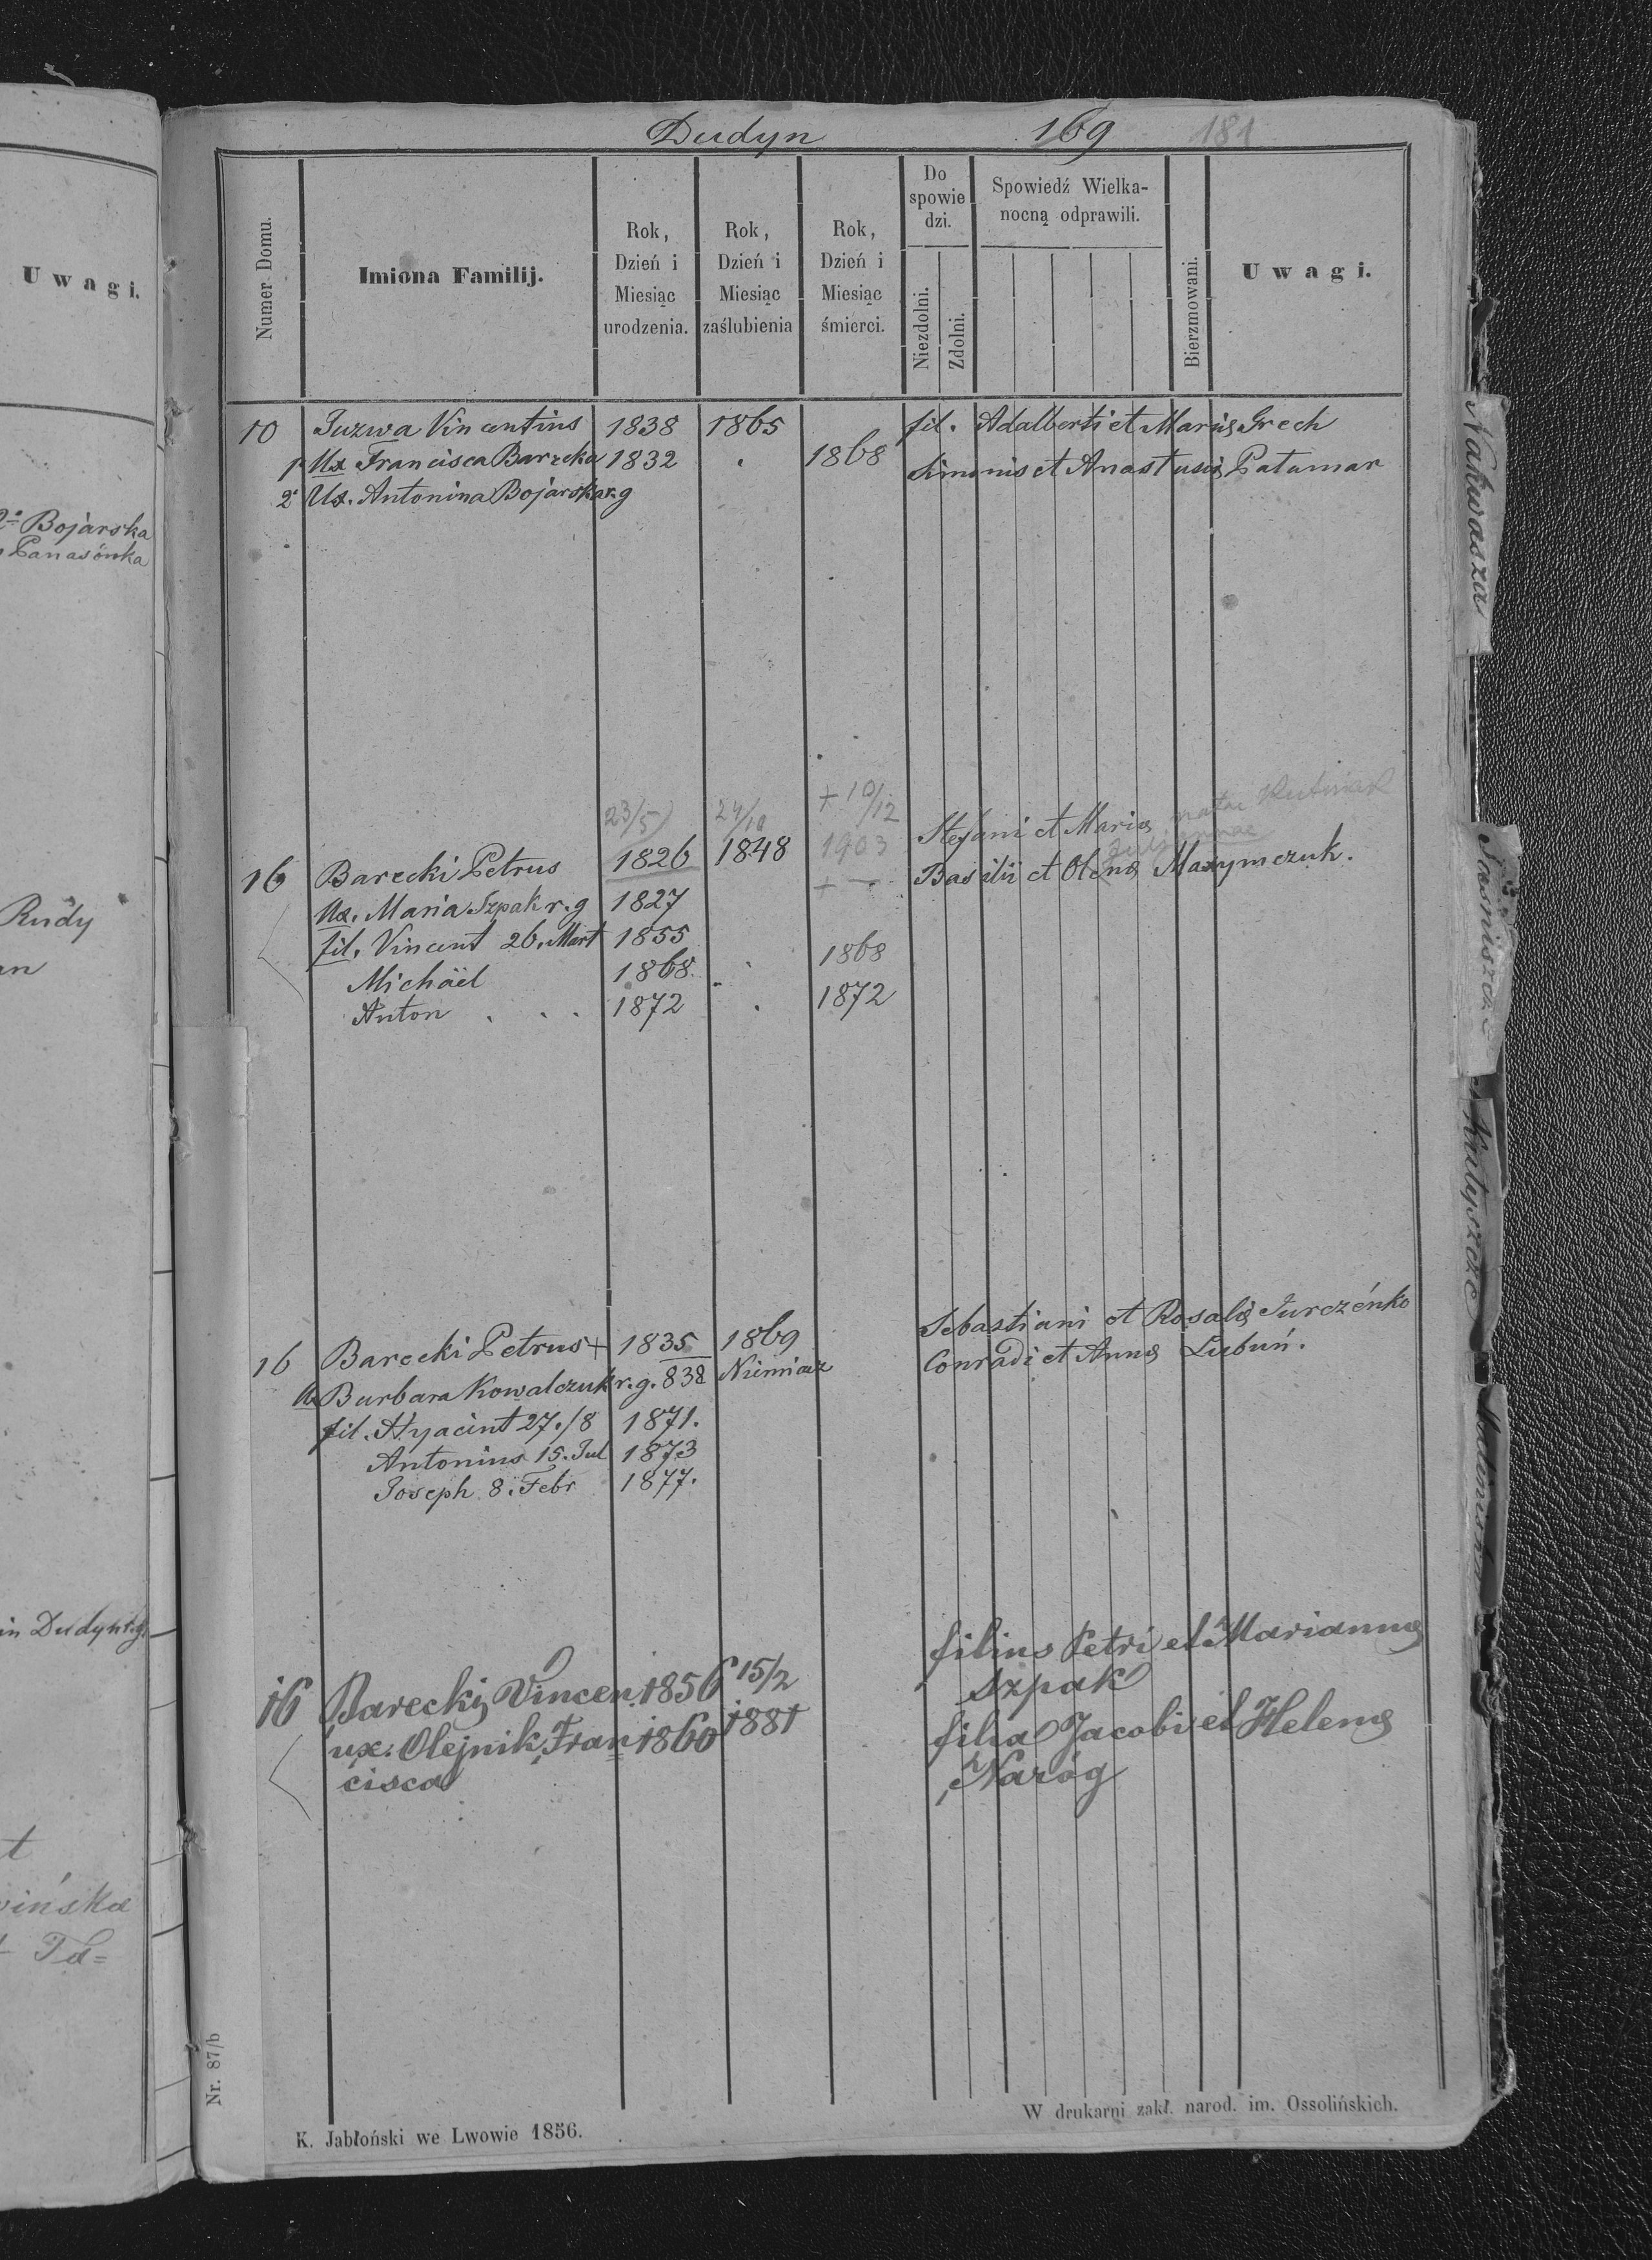 Dudyn 169 181
Numer Domu.
Imiona Familij.
Rok, Dzień i Miesiąc urodzenia.
Rok, Dzień i Miesiąc zaślubienia
Rok, Dzień i Miesiąc śmierci.
Do spowie dzi.
Niezdolni.
Zdolni.
Spowiedź Wielka-
nocną odprawili.
Bierzmowani.
Uwagi.
10 Juzwa Vincentius 1838 1865 fil. Adalberti et Mariæ Grech
1º Ux Francisca Barecka 1832 1868 Simonis et Anastasiæ Patamar
2º Ux. Antonina Bojarska r.g
23/5 24/10 + 10/12
16 Barecki Petrus 1826 1848 1903 Stefani et Mariæ natae
Ux. Maria Szpak r.g 1827 + — Basilii et Olenæ Maxymczuk.
fil. Vincent 26. Mart 1855
Michäel 1868. 1868
Anton . . . 1872 . 1872
16 Barecki Petrus + 1835 1869 Sebastiani et Rosaliæ Jurczénko
Ux Barbara Kowalczuk r.g. 838 Niemiacz Conradi et Annæ Lubuń.
fil. Hyacint 27./8 1871.
Antonius 15. Jul 1873
Joseph 8. Febr 1877.
16 Barecki Vincen. 1856 15/2 filius Petri et Mariannæ
Szpak
ux. Olejnik Fran 1860 1881 filia Jacobi et Helenæ
cisca Naróg
Nr. 87/b
K. Jabłoński we Lwowie 1856.
W drukarni zakł. narod. im. Ossolińskich.
Uwagi.
2º Bojarska
Panasówka
Rudy
an
in Dudyn r.g.
t
wińska
Ta=
Nakwasza